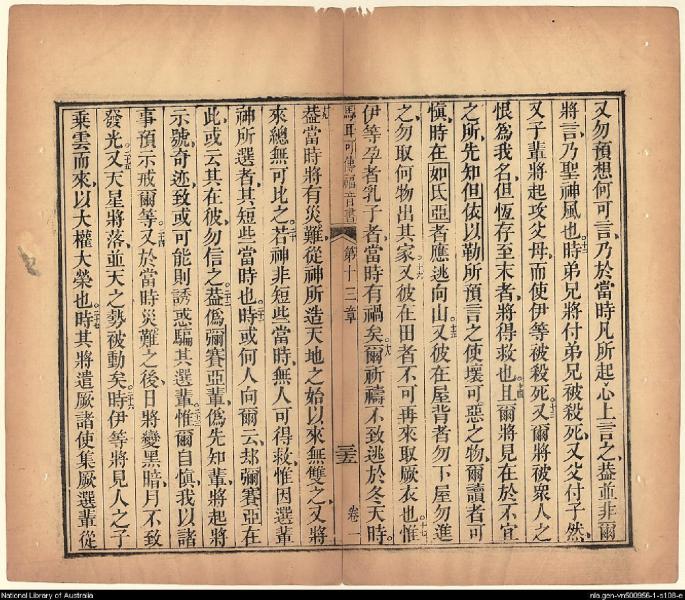 又勿預想何可言乃於當時凡所起心上言之葢並非爾
將言乃聖神風也時弟兄將付弟兄被殺死又父付子然
又子輩將起攻父母而使伊等被殺死又爾將被衆人之
恨為我名但恆存至末者將得救也且爾將見在於不宜
之所先知但依以勒所預言之使壞可惡之物爾讀者可
愼時在如氏亞者應逃向山又彼在屋背者勿下屋勿進
之勿取何物出其家又彼在田者不可再來取厥衣也惟
伊等孕者乳子者當時有禍矣爾祈禱不致逃於冬天時
馬耳可傳福音書 第十三章 三五 卷一
葢當時將有災難從神所造天地之始以來無雙之又將
來總無可比之若神非短些當時無人可得救惟因選輩
神所選者其短些當時也時或何人向爾云却彌賽亞在
此或云其在彼勿信之葢僞彌賽亞輩僞先知輩將起將
示號奇迹致或可能則誘惑騙其選輩惟爾自慎我以諸
事預示戒爾等又於當時災難之後日將變黑暗月不致
發光又天星將落並天之勢被動矣時伊等將見人之子
乘雲而來以大權大榮也時其將遣厥諸使集厥選輩從
National Library of Australia
nla.gen-vn500956-1-s108-e